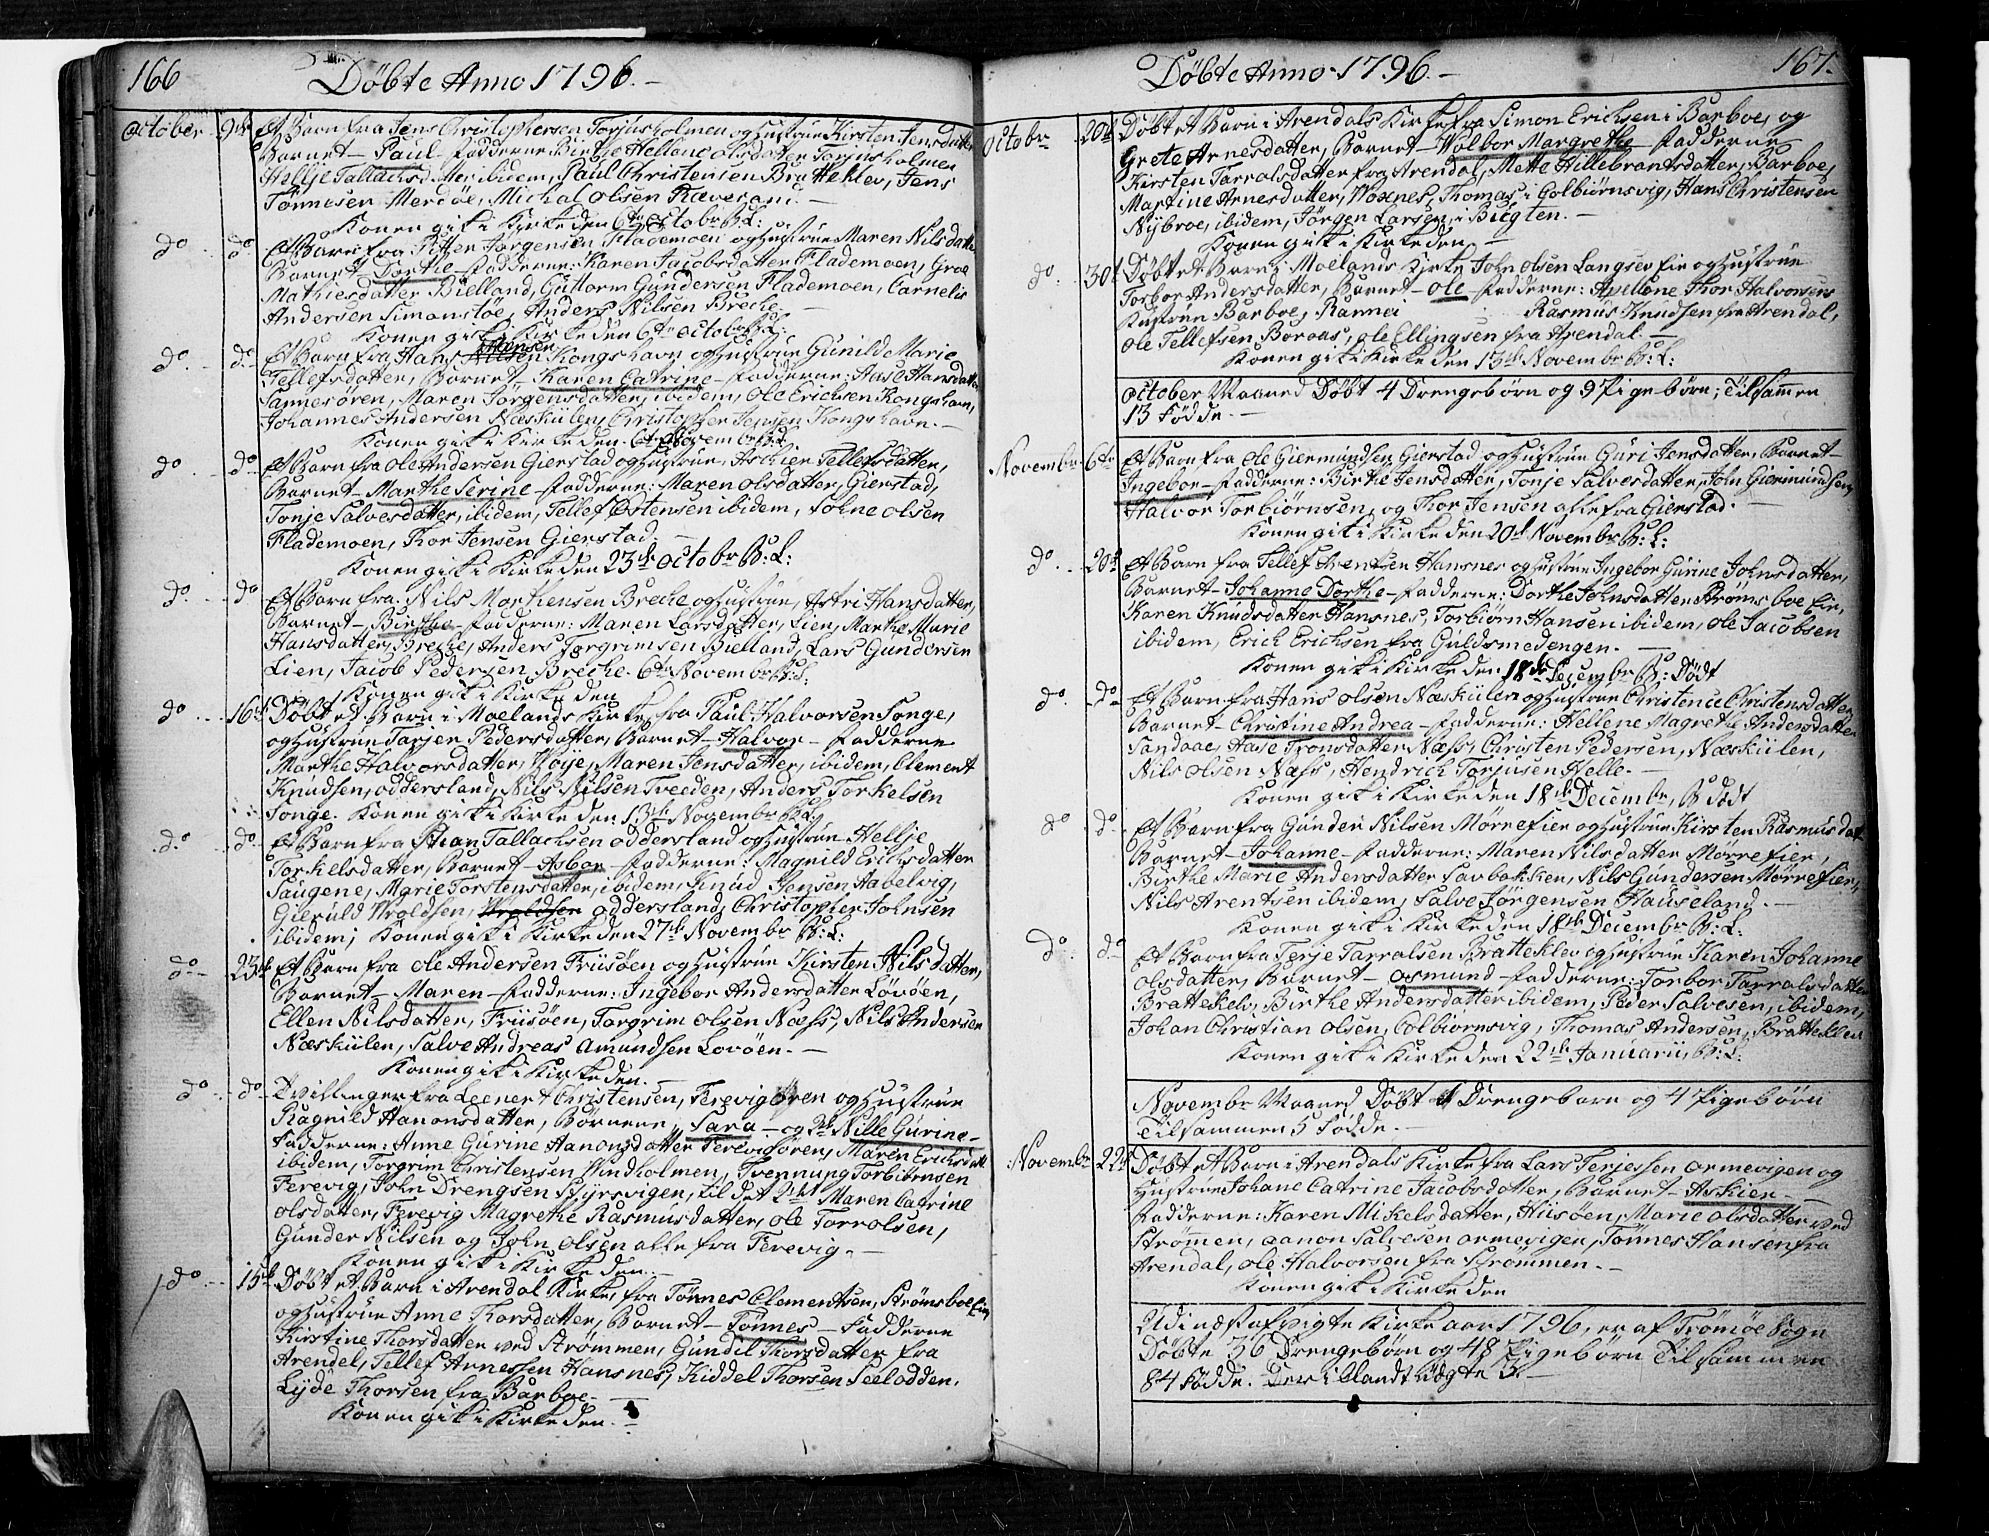 166
Döbte Anno 1796.
October 9de Et Barn fra Jens Christophersen Torjusholmen og Hustrue Kirsten Jensdatter
Barnet - Paul - Fadderne Birthe Hellene Olsdatter Torjusholmen
Hellje Tallachsdatter ibidem, Paul Christensen Bratteklev, Jens
Tönnesen Merdöe, Michal Olsen Ræverand. -
Konen gik i Kirke den 6te Octobr B: L:
do do Et Barn fra Peter Jörgensen Flademoen og Hustrue Maren Nilsdatter
Barnet - Dorthe - Fadderne: Karen Jacobsdatter Flademoen, Groe
Mathiesdatter Bielland, Guttorm Gundersen Flademoen, Carnelis
Andersen Simonstöe, Anders Nilsen Breche. -
Konen gik i Kirke den 6te October B: L:
do do Et Barn fra Hans Hansen Kongshavn og Hustrue Gunild Marie
Tellefsdatter, Barnet - Karen Catrine - Fadderne: Aase Hansdatter
Sannesören, Maren Jörgensdatter, ibidem, Ole Erichsen Kongshavn,
Johannes Andersen Næskilen, Christopher Jensen Kongshavn. -
Konen gik i Kirke den 6te Novembr B: L:
do do Et Barn fra Ole Andersen Gierstad og Hustrue, Aschier Tellefsdatter,
Barnet - Marthe Serine - Fadderne: Maren Olsdatter, Gierstad,
Tonje Salvesdatter, ibidem, Tellef Östensen ibidem, Solne Olsen
Flademoen, Thor Jensen Gierstad. -
Konen gik i Kirke den 23de Octobr B: L:
do do Et Barn fra Nils Morthensen Breche og Hustrue, Astri Hansdatter,
Barnet - Birthe - Fadderne: Maren Larsdatter, Lien, Marthe Marie
Hansdatter, Breche, Anders Torgrimsen Bielland, Lars Gundersen
Lien, Jacob Pedersen Breche. 6te Novembr B: L:
Konen gik i Kirke den
do 16de Döbt et Barn i Moelands Kirke fra Paul Halvorsen Songe,
og Hustrue Tarjer Pedersdatter, Barnet - Halvor - Fadderne
Marthe Halvorsdatter, Höije, Maren Jensdatter, ibidem, Clement
Knudsen, Oddersland, Nils Nilsen Tveeden, Anders Torkelsen
Songe. Konen gik i Kirke den 13de Novembr B: L:
do do Et Barn fra Stian Tallachsen Oddersland og Hustrue Hellje
Torkelsdatter, Barnet - Asbor - Fadderne: Magnild Erichsdatter
Saugene, Marie Torstensdatter, ibidem, Knud Jensen Aabelvig,
Gieruld Wroldsen, Oddersland, Christopher Johnsen
ibidem; Konen gik i Kirke den 27de Novembr B: L:
do 23de Et Barn fra Ole Andersen Friisöen og Hustrue Kirsten Nilsdatter,
Barnet - Maren - Fadderne: Ingebor Andersdatter Lövöen,
Ellen Nilsdatter, Friisöen, Torgrim Olsen Næss, Nils Andersen
Næskiilen, Salve Andreas Amundsen Lovöen. -
Konen gik i Kirke den. -
do do Tvillinger fra Leenert Christensen, Ferevigören og Hustrue
Ragnild Hanonsdatter, Börnene, Sara - og 2de Nille Gurine -
Fadderne: Anne Gurine Aanonsdatter Ferevigören, Maren Erichsdatter
ibidem, Torgrim Christensen Sundholmen, Trennung Torbiörnsen
Ferevig, John Drengsen Styrsvigen, til det 2det Maren Catrine
Olsdatter, Ferevig Magrethe Rasmusdatter, Ole Torrolsen,
Gunder Nilsen og John Olsen alle fra Ferevig. -
Konen gik i Kirke den. -
do 15de Döbt et Barn i Arendal Kirke, fra Tönnes Clementsen, Strömsboe Eie
og Hustrue Anne Thorsdatter, Barnet - Tönnes - Fadderne
Kirstine Thorsdatter ved Strömmen, Gundil Thorsdatter fra
Arendel, Tellef Arnessen Hansnes, Kiddel Thorsen Seelodden.
Lyde Thorsen fra Barboe. -
Konen gik i Kirke den. -
Döbte Anno 1796.
167.
Octobr 20de Döbt et Barn i Arendals Kirke fra Simon Erichsen i Barboe, og
Grete Arnesdatter, Barnet - Wolbor Margrethe - Fadderne
Kirsten Tarralsdatter fra Arendal, Mette Hillebrantsdatter, Barboe,
Martine Arnesdatter, Woxnes, Thomas i Colbiörnsvig, Hans Christensen
Nybroe, ibidem, Jörgen Larsen, i Biegten. -
Konen gik i Kirke den -
do 30de Döbt et Barn i Moelands Kirke, John Olsen Langsev Eie og Hustrue
Torbor Andersdatter, Barnet - Ole - Fadderne: Apellone Thor Halvorsens
Hustrue Barboe, Rannei Rasmus Knudsen fra Arendal,
Ole Tellefsen Boraas, Ole Ellingsen fra Arendal. -
Konen gik i Kirke den 13de Novembr B: L:
October Maaned Döbt 4 Drengebörn og 9 Pigebörn; Tilsamen
13 Födde. -
Novembr 6te Et Barn fra Ole Giermundsen Gierstad og Hustrue Guri Jensdatter, Barnet -
Ingebor - Fadderne: Birthe Jensdatter, Tonje Salvesdatter, John Giermundsen
Halvor Torbiörnsen, og Thor Jensen alle fra Gierstad. -
Konen gik i Kirke den 20de Novembr B: L:
do 20de Et Barn fra Tellef Arentsen Hansnes og Hustrue Ingebor Gurine Johnsdatter,
Barnet - Johanne Dorthe - Fadderne: Dorthe Johnsdatter Strömsboe Eie,
Karen Knudsdatter Hansnes, Torbiörn Hansen ibidem, Ole Jacobsen
ibidem, Erich Erichsen fra Guldsmedengen. -
Konen gik i Kirke den 18de Decembr B: Dödt
do do Et Barn fra Hans Olsen Næskiilen og Hustrue Christence Christensdatter
Barnet - Christine Andrea - Fadderne: Hellene Magrethe Andersdatter
Sandaae, Aase Tronsdatter Næss, Christen Pedersen, Næskiilen,
Nils Olsen Næss, Hendrich Torjusen Helle. -
Konen gik i Kirke den 18de Decembr, B: dödt
do do Et Barn fra Gunder Nilsen Mörrefier og Hustrue Kirsten Rasmusdatter
Barnet - Johanne - Fadderne: Maren Nilsdatter Mörrefier,
Birthe Marie Andersdatter Savbakken, Nils Gundersen Mörrefier,
Nils Arentsen ibidem, Salve Jörgensen Hauseland. -
Konen gik i Kirke den 18de Decembr B: L:
do do Et Barn fra Terje Tarralsen Bratteklev og Hustrue Karen Johanne
Olsdatter, Barnet - Osmund - Fadderne: Torbor Tarralsdatter
Bratteklev, Birthe Andersdatter ibidem, Peder Salvesen, ibidem,
Johan Christian Olsen, Colbiörnsvig, Thomas Andersen, Bratteklev
Konen gik i Kirke den 22de Januarii, B: L:
Novembr Maaned Döbt 1 Drengebarn og 4 Pigebörn
Tilsammen 5 Födde. -
Novembr 22de Döbt et Barn i Arendals Kirke fra Lars Terjessen Ormevigen og
Hustrue Johane Catrine Jacobsdatter, Barnet - Askier -
Fadderne: Karen Mikelsdatter, Hiisöen, Marie Olsdatter ved
Strömen, Aanon Salvesen Ormevigen, Tönnes Hansen fra
Arendal, Ole Halvorsen fra Strömmen. -
Konen gik i Kirke den
Udi næstafvigte Kirke aar 1796, er af Tromöe Sogn
Döbte 36 Drengebörn og 48 Pigebörn Tilsammen
84 Födde. Deriblandt Uægte 3. -